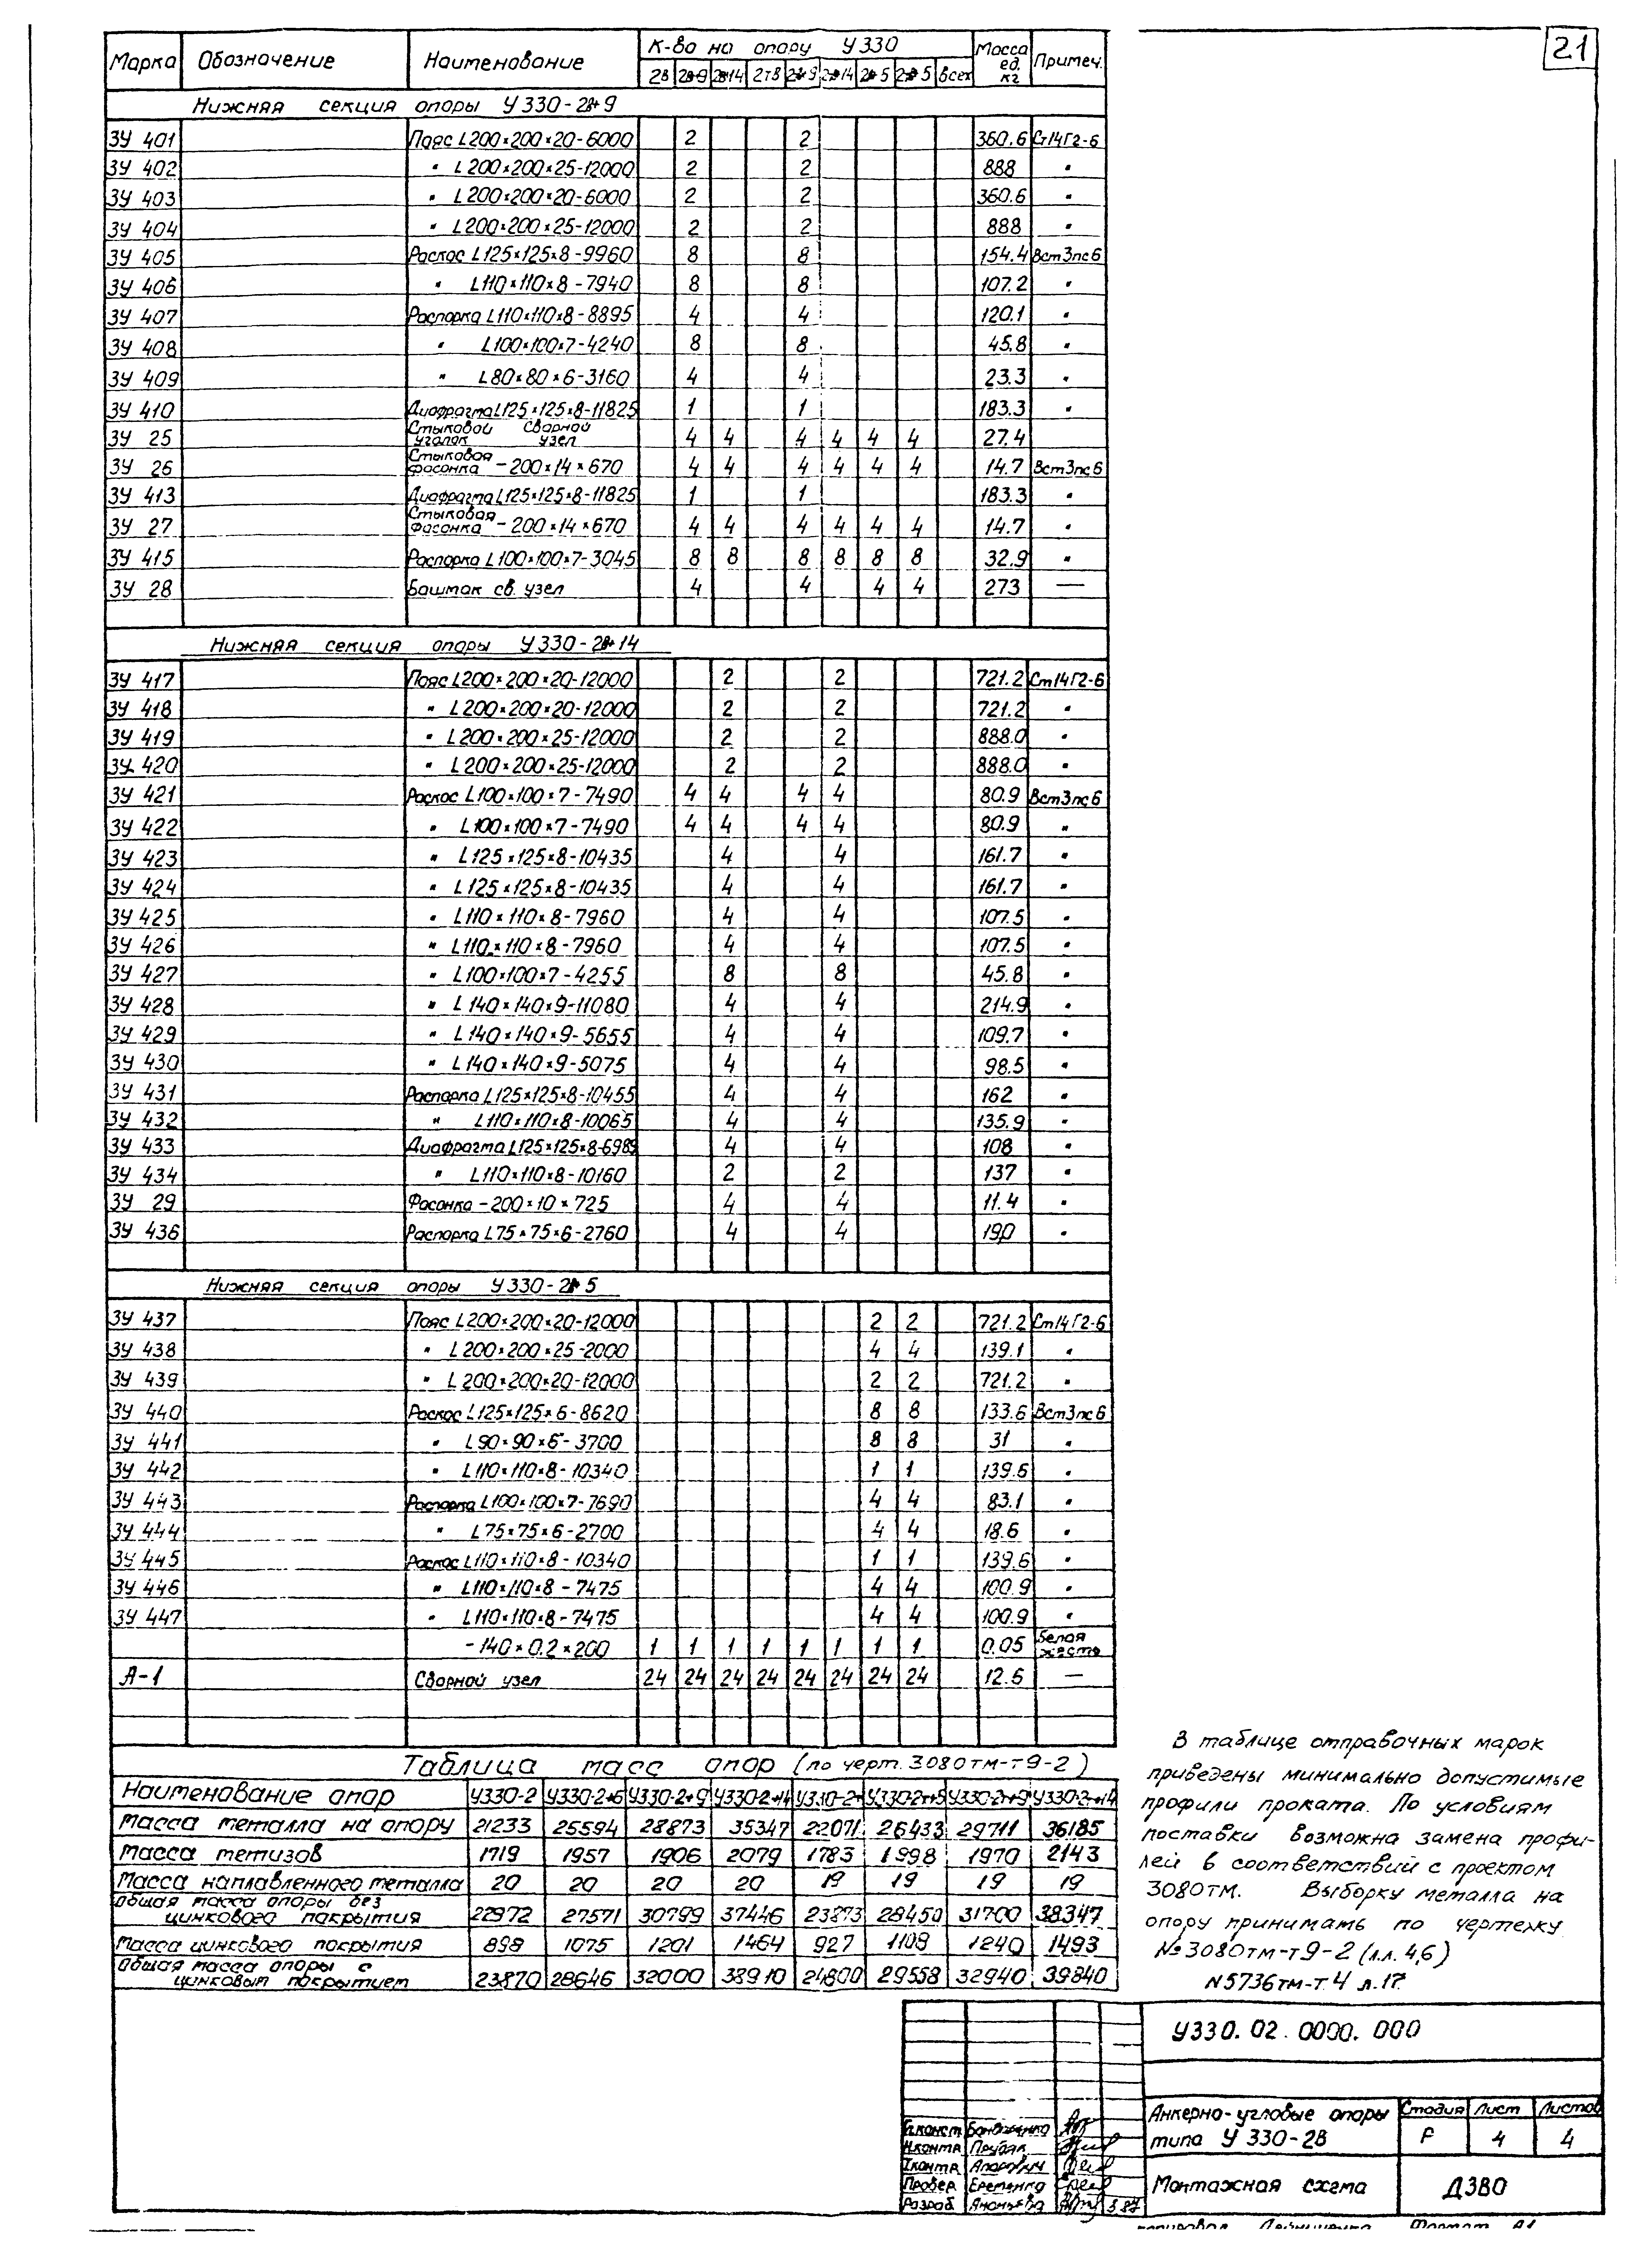 21
Марка Обозначение Наименование К-во на опору У330 Масса ед. кг Примеч.
2в 2в+9 2в+14 2т8 всех
Нижняя секция опоры У330-2в+9
3У 401 Пояс L200×200×20-6000 2 2 360.6 Ст14Г2-6
3У 402 " L200×200×25-12000 2 2 888 "
3У 403 " L200×200×20-6000 2 2 360.6 "
3У 404 " L200×200×25-12000 2 2 888 "
3У 405 Раскос L125×125×8-9960 8 8 154.4 Вст3пс6
3У 406 " L110×110×8-7940 8 8 107.2 "
3У 407 Распорка L110×110×8-8895 4 4 120.1 "
3У 408 " L100×100×7-4240 8 8 45.8 "
3У 409 " L80×80×6-3160 4 4 23.3 "
3У 410 Диафрагма L125×125×8-11825 1 1 183.3 "
3У 25 Стыковой уголок Сварной узел 4 4 4 4 4 4 27.4
3У 26 Стыковая фасонка -200×14×670 4 4 4 4 4 4 14.7 Вст3пс6
3У 413 Диафрагма L125×125×8-11825 1 1 183.3 "
3У 27 Стыковая фасонка -200×14×670 4 4 4 4 4 4 14.7 "
3У 415 Распорка L100×100×7-3045 8 8 8 8 8 8 32.9 "
3У 28 Башмак св. узел 4 4 4 4 273 —
Нижняя секция опоры У330-2в+14
3У 417 Пояс L200×200×20-12000 2 2 721.2 Ст14Г2-6
3У 418 " L200×200×20-12000 2 2 721.2 "
3У 419 " L200×200×25-12000 2 2 888.0 "
3У 420 " L200×200×25-12000 2 2 888.0 "
3У 421 Раскос L100×100×7-7490 4 4 4 4 80.9 Вст3пс6
3У 422 " L100×100×7-7490 4 4 4 4 80.9 "
3У 423 " L125×125×8-10435 4 4 161.7 "
3У 424 " L125×125×8-10435 4 4 161.7 "
3У 425 " L110×110×8-7960 4 4 107.5 "
3У 426 " L110×110×8-7960 4 4 107.5 "
3У 427 " L100×100×7-4255 8 8 45.8 "
3У 428 " L140×140×9-11080 4 4 214.9 "
3У 429 " L140×140×9-5655 4 4 109.7 "
3У 430 " L140×140×9-5075 4 4 98.5 "
3У 431 Распорка L125×125×8-10455 4 4 162 "
3У 432 " L110×110×8-10065 4 4 135.9 "
3У 433 Диафрагма L125×125×8-6985 4 4 108 "
3У 434 " L110×110×8-10160 2 2 137 "
3У 29 Фасонка -200×10×725 4 4 11.4 "
3У 436 Распорка L75×75×6-2760 4 4 19,0 "
Нижняя секция опоры У330-2в+5
3У 437 Пояс L200×200×20-12000 2 2 721.2 Ст14Г2-6
3У 438 " L200×200×25-2000 4 4 139.1 "
3У 439 " L200×200×20-12000 2 2 721.2 "
3У 440 Раскос L125×125×6-8620 8 8 133.6 Вст3пс6
3У 441 " L90×90×6-3700 8 8 31 "
3У 442 " L110×110×8-10340 1 1 139.6 "
3У 443 Распорка L100×100×7-7690 4 4 83.1 "
3У 444 " L75×75×6-2700 4 4 18.6 "
3У 445 Раскос L110×110×8-10340 1 1 139.6 "
3У 446 " L110×110×8-7475 4 4 100.9 "
3У 447 " L110×110×8-7475 4 4 100.9 "
-140×0.2×200 1 1 1 1 1 1 1 1 0.05 Белая жесть
А-1 Сварной узел 24 24 24 24 24 24 24 24 12.6 —
Таблица масс опор (по черт. 3080тм-т9-2)
Наименование опор У330-2 У330-2+6 У330-2+9 У330-2+14 У330-2т У330-2т+5 У330-2т+9 У330-2т+14
Масса металла на опору 21233 25594 28873 35347 22071 26433 29711 36185
Масса метизов 1719 1957 1906 2079 1783 1998 1970 2143
Масса наплавленного металла 20 20 20 20 19 19 19 19
Общая масса опоры без цинкового покрытия 22972 27571 30799 37446 23873 28450 31700 38347
Масса цинкового покрытия 898 1075 1201 1464 927 1108 1240 1493
Общая масса опоры с цинковым покрытием 23870 28646 32000 38910 24800 29558 32940 39840
В таблице отправочных марок
приведены минимально допустимые
профили проката. По условиям
поставки возможна замена профи-
лей в соответствий с проектом
3080тм. Выборку металла на
опору принимать по чертежу
№3080тм-т9-2 (л.л. 4,6)
N5736тм-т.4 л.17.
У330.02.0000.000
Анкерно-угловые опоры
типа У 330-2В
Стадия Лист Листов
Р 4 4
Монтажная схема
ДЗВО
Гл.конст
Н.контр
Т.контр
Провер. Еременко
Разраб. Ананьева
Формат А1